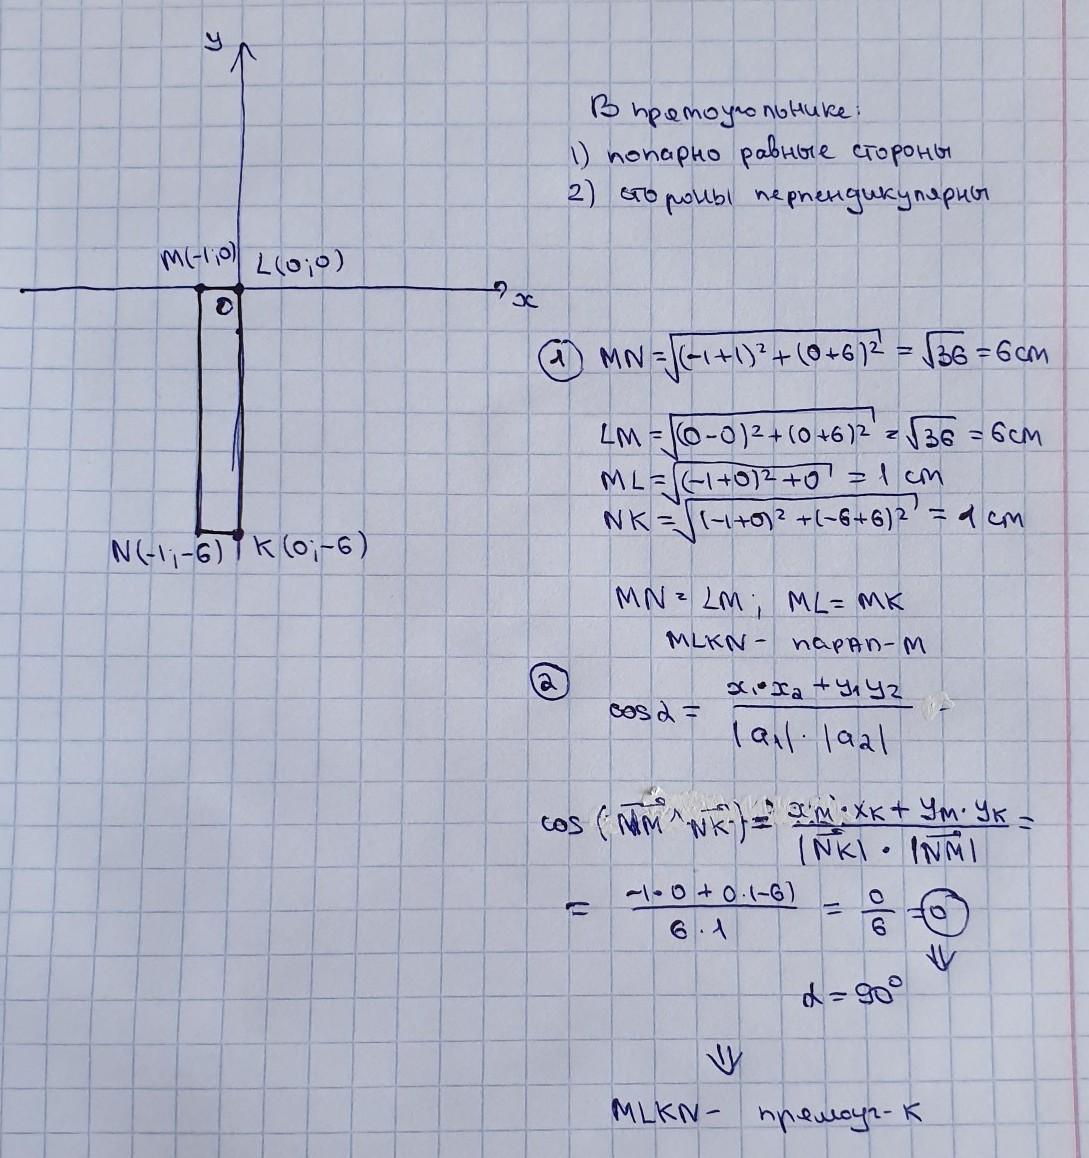 y
В прямоугольнике:
1) попарно равные стороны
2) стороны перпендикулярны
M(-1;0) L(0;0)
x
0
① MN = √(-1+1)² + (0+6)² = √36 = 6см
LM = √(0-0)² + (0+6)² = √36 = 6см
ML = √(-1+0)² + 0 = 1 см
NK = √(-1+0)² + (-6+6)² = 1 см
N(-1;-6) K(0;-6)
MN = LM; ML = MK
MLKN - парал-м
② cos α = (x₁·x₂ + y₁y₂) / (|a₁|·|a₂|)
cos (NM^NK) = (xM·xK + yM·yK) / (|NK|·|NM|) =
= (-1·0 + 0·(-6)) / (6·1) = 0/6 = 0
⇓
α = 90°
⇓
MLKN - прямоуг-к